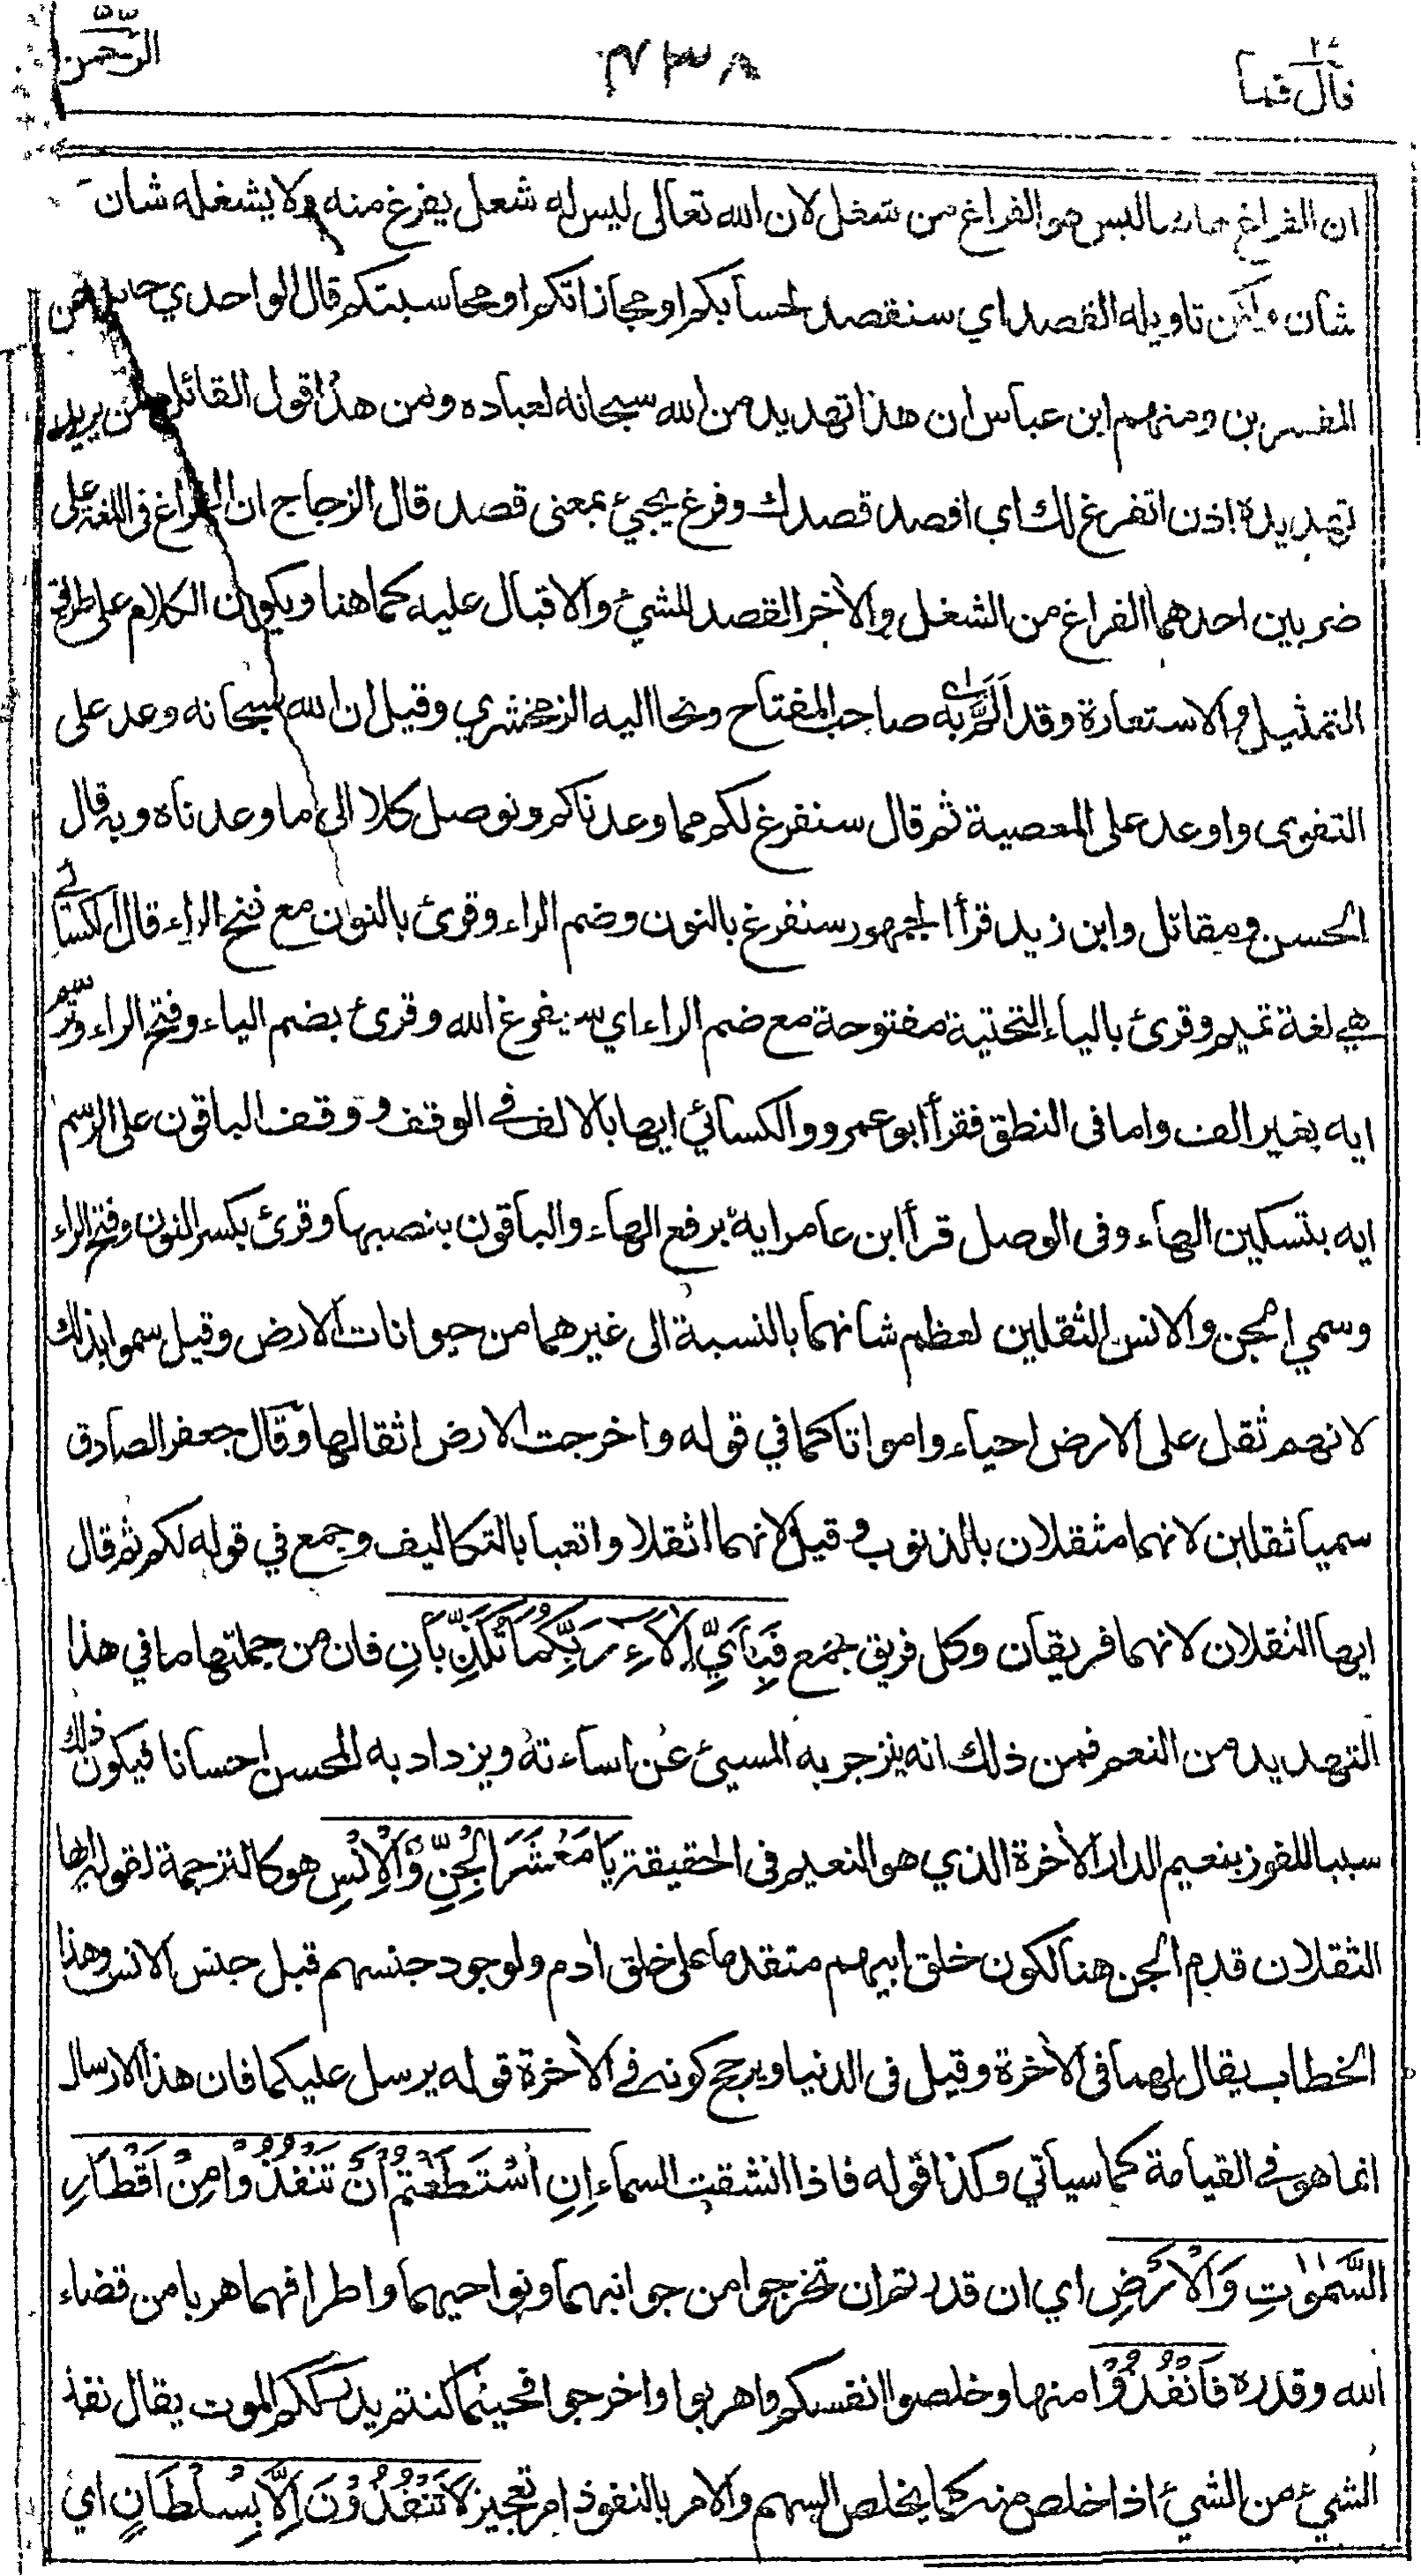 قال فما ٢٧
٢٣٨
الرحمن ٥٥
ان الفراغ ههنا ليس هو الفراغ من شغل لان الله تعالى ليس له شغل يفرغ منه ولا يشغله شان
شان ولكن تاويله القصد اي سنقصد لحسابكم او مجازاتكم او محاسبتكم قال الواحدي حاكيا عن
المفسرين ومنهم ابن عباس ان هذا تهديد من الله سبحانه لعباده ومن هذا قول القائل لمن يريد
تهديده اذن اتفرغ لك اي اقصد قصدك وفرغ يجيئ بمعنى قصد قال الزجاج ان الفراغ فى اللغة على
ضربين احدهما الفراغ من الشغل والأخر القصد للشيئ والاقبال عليه كما هنا ويكون الكلام على طريق
التمثيل والاستعارة وقد ألم به صاحب المفتاح ونحا اليه الزمخشري وقيل ان الله سبحانه وعد على
التقوى واوعد على المعصية ثم قال سنفرغ لكم مما وعدناكم ونوصل كلا الى ما وعدناه وبه قال
الحسن ومقاتل وابن زيد قرأ الجمهور سنفرغ بالنون وضم الراء وقرئ بالنون مع فتح الراء قال الكسائي
هي لغة تميم وقرئ بالياء التحتية مفتوحة مع ضم الراء اي سيفرغ الله وقرئ بضم الياء وفتح الراء ورسم
ايه بغير الف واما فى النطق فقرأ أبو عمرو والكسائي ايها بالالف في الوقف ووقف الباقون على الرسم
ايه بتسكين الهاء وفى الوصل قرأ ابن عامر ايه برفع الهاء والباقون بنصبها وقرئ بكسر النون وفتح الراء
وسمي الجن والانس الثقلين لعظم شانهما بالنسبة الى غيرهما من حيوانات الارض وقيل سموا بذلك
لانهم ثقل على الارض احياء وامواتا كما في قوله واخرجت الارض اثقالها وقال جعفر الصادق
سميا ثقلين لانهما مثقلان بالذنوب وقيل لانهما اثقلا واتعبا بالتكاليف وجمع في قوله لكم ثم قال
ايها الثقلان لانهما فريقان وكل فريق جمع فَبِأَيِّ اٰلَاۤءِ رَبِّكُمَا تُكَذِّبَانِ فان من جملتها ما في هذا
التهديد من النعم فمن ذلك انه ينزجر به المسيئ عن اساءته ويزداد به المحسن احسانا فيكون ذلك
سببا للفوز بنعيم الدار الأخرة الذي هو النعيم فى الحقيقة يَا مَعْشَرَ الْجِنِّ وَالْاِنْسِ هو كالترجمة لقوله ايها
الثقلان قدم الجن هنا لكون خلق ابيهم متقدما على خلق أدم ولوجود جنسهم قبل جنس الانس وهذا
الخطاب يقال لهما فى الأخرة وقيل فى الدنيا ويرجح كونه في الأخرة قوله يرسل عليكما فان هذا الارسال
انما هو في القيامة كما سياتي وكذا قوله فاذا انشقت السماء اِنِ اسْتَطَعْتُمْ اَنْ تَنْفُذُوْا مِنْ اَقْطَارِ
السَّمٰوٰتِ وَالْاَرْضِ اي ان قدرتم ان تخرجوا من جوانبهما ونواحيهما واطرافهما هربا من قضاء
الله وقدره فَانْفُذُوْا منها وخلصوا انفسكم واهربوا واخرجوا فحيثما كنتم يدرككم الموت يقال نفذ
الشيئ من الشيئ اذا خلص منه كما يخلص السهم والامر بالنفوذ امر تعجيز لَا تَنْفُذُوْنَ اِلَّا بِسُلْطَانٍ اي